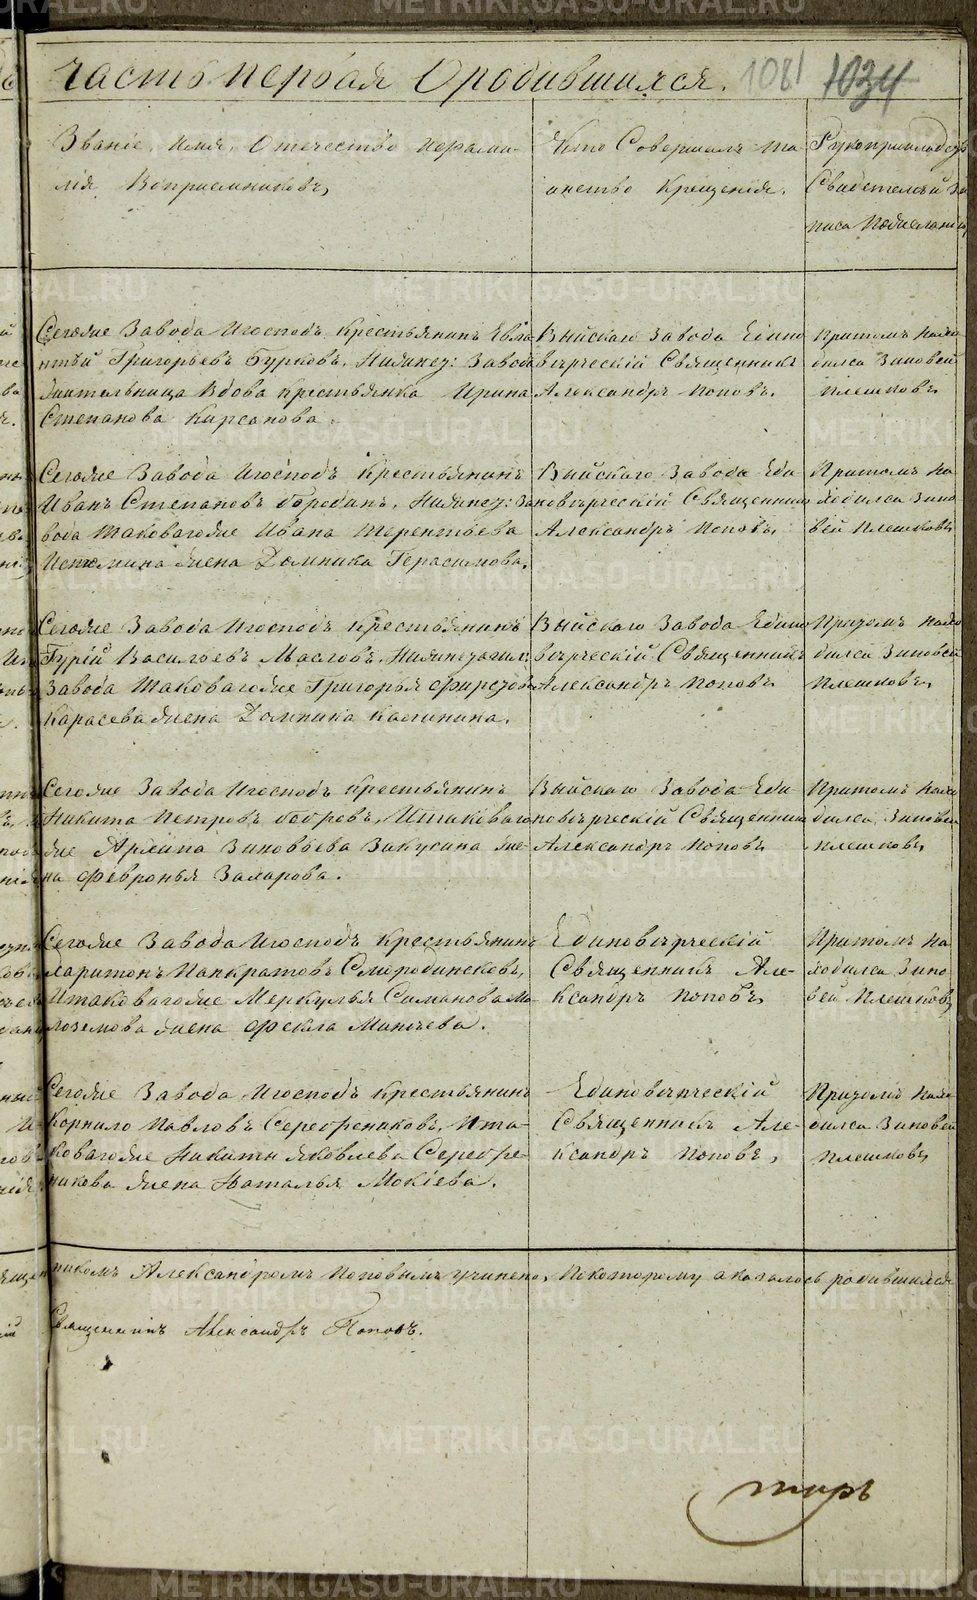 Часть первая О родившихся. 1081 1034
Званіе, имя, Отечество ифами-
лія Воспріемниковъ,
Кто Совершалъ та-
инство Крещенія.
Рукоприкладство
Свидетелей за-
писа Пожеланію,
Сегоже Завода Игосподъ крестьянинъ Евла-
нтѣй Григорьевъ Бурковъ, Нижнеу: Завода
жительница Вдова крестьянка Ирина
Степанова Кирсанова.
Выйскаго Завода Едино-
вѣрческій Священникъ
Александръ Поповъ.
Притомъ нахо-
дился Зиновей
Плешковъ
Сегоже Завода Игосподъ Крестьянинъ
Иванъ Степановъ бородинъ, Нижнеу: За-
вода таковагоже Ивана Терентьева
Истомина жена Домника Герасимова,
Выйскаго Завода Еди-
новѣрческій Священникъ
Александръ Поповъ,
Притомъ на-
ходился Зино-
вей Плешковъ
Сегоже Завода Игосподъ Крестьянинъ
Гурій Васильевъ Масловъ, Нижнетагил:
Завода таковагоже Григорья Фирстова
Карасева жена Домника Калинина.
Выйскаго Завода Едино-
вѣрческій Священникъ
Александръ Поповъ
Притомъ нахо-
дился Зиновей
Плешковъ,
Сегоже Завода Игосподъ крестьянинъ
Никита Петровъ бобровъ, Итаковаго-
же Архипа Зиновьева Закусина же-
на Февронья Захарова.
Выйскаго Завода Еди-
новѣрческій Священникъ
Александръ Поповъ
Притомъ нахо-
дился Зиновей
Плешковъ,
Сегоже Завода Игосподъ Крестьянинъ
Харитонъ Панкратовъ Смародинсковъ,
Итаковагоже Меркулья Симанова Ма-
лоземова жена Фекла Минѣева.
Единовѣрческій
Священникъ Але-
ксандръ Поповъ,
Притомъ на-
ходился Зино-
вей Плешковъ
Сегоже Завода Игосподъ крестьянинъ
Корнило Павловъ Серебрениковъ, Ита-
ковагоже Никиты Яковлева Серебре-
никова жена Наталья Мокіева.
Единовѣрческій
Священникъ Але-
ксандръ Поповъ,
Притомъ нахо-
дился Зиновей
Плешковъ,
никомъ Александромъ Поповымъ учинено, Покоторому аказалось родившихся
Священникъ Александръ Поповъ.
тарь